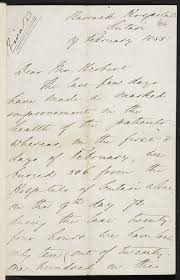 Barrack Hospital
Scutari
19 February 1855
Dear Mr. Herbert
The last few days
have made a marked
improvement in the
health of the patients
Whereas, in the first 8
days of February, we
buried 506 from the
Hospitals of Scutari alone
on the 9th day 72
during the last twenty
four hours we have
only ten (out of twenty
one hundred in the